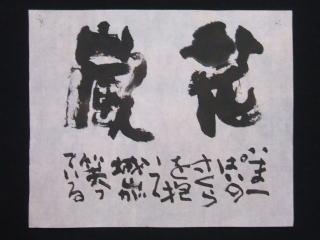 花嵐
いま一
ぱいの
さくら
を抱
いて
城山が
笑っ
ている